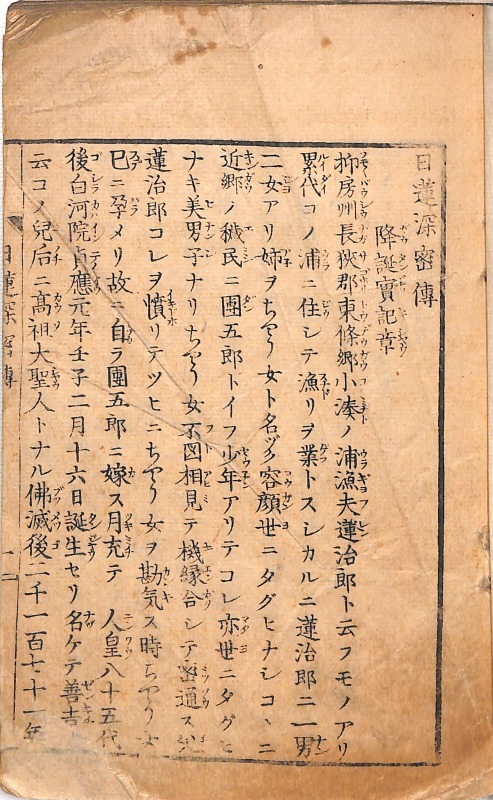 日蓮深密傳
降誕實記章
抑房州長狹郡東條郷小湊ノ浦漁夫蓮治郎ト云フモノアリ
累代コノ浦ニ住シテ漁リヲ業トスシカルニ蓮治郎ニ一男
二女アリ姉ヲちやう女ト名ヅク容顔世ニタグヒナシコヽニ
近郷ノ穢民ニ團五郎トイフ少年アリテコレ亦世ニタグヒ
ナキ美男子ナリちやう女不図相見テ機縁合シテ密通ス
蓮治郎コレヲ憤リテツヒニちやう女ヲ勘気ス時ちやう女
巳ニ孕メリ故ニ自ラ團五郎ニ嫁ス月充テ 人皇八十五代
後白河院貞應元年壬子二月十六日誕生セリ名ケテ善吉
云コノ兒后ニ髙祖大聖人トナル佛滅後二千一百七十一年
日蓮深密傳